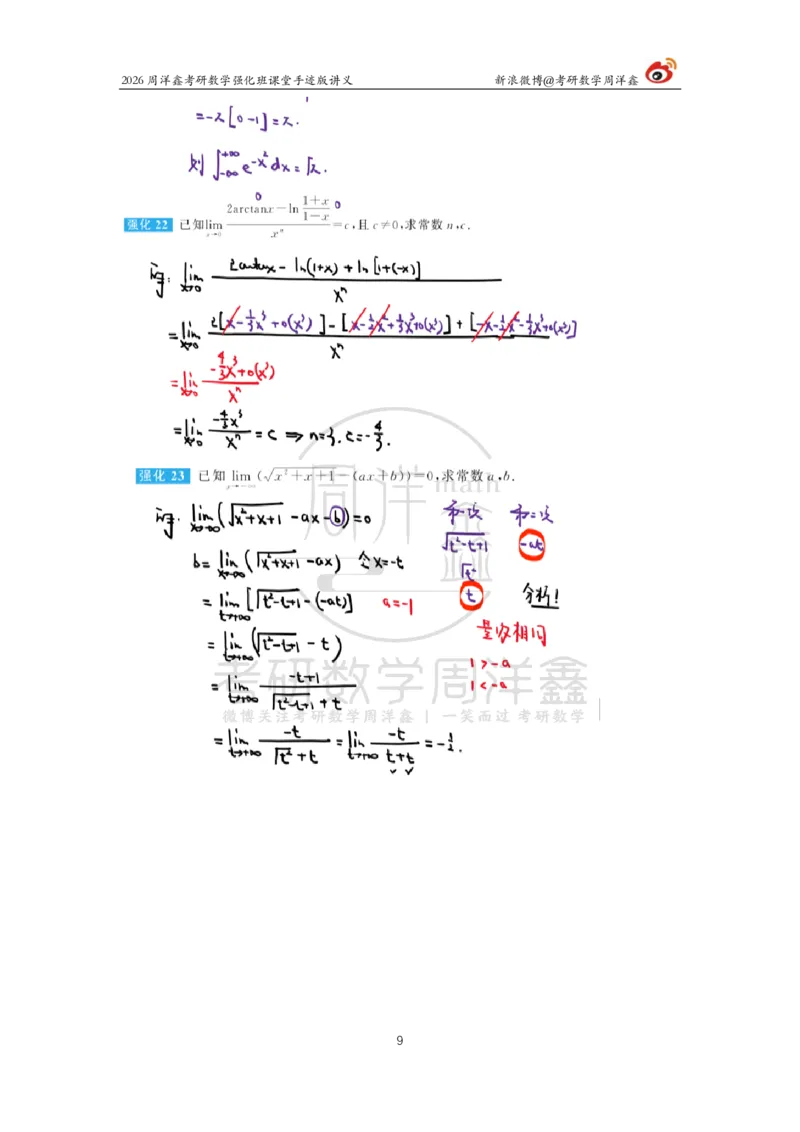 2026 周洋鑫考研数学强化班课堂手迹版讲义 新浪微博@考研数学周洋鑫
=-π[0-1]=π.
则 ∫_{-∞}^{+∞} e^{-x²}dx=√π.
强化 22 已知 lim_{x→0} (2arctanx-ln(1+x)/(1-x))/x^n =c,且 c≠0,求常数 n,c.
lim_{x→0} (2arctanx-ln(1+x)+ln[1+(-x)])/x^n
=lim_{x→0} (2[x-1/3x³+o(x³)]-[x-1/2x²+1/3x³+o(x³)]+[-x-1/2x²-1/3x³+o(x³)])/x^n
=lim_{x→0} (-4/3x³+o(x³))/x^n
=lim_{x→0} (-4/3x³)/x^n =c ⇒ n=3. c=-4/3.
强化 23 已知 lim_{x→-∞} (√(x²+x+1)-(ax+b))=0,求常数 a,b.
lim_{x→-∞}(√(x²+x+1)-ax-b)=0
b=lim_{x→-∞}(√(x²+x+1)-ax) 令x=-t
=lim_{t→+∞}[√(t²-t+1)-(-at)] a=-1
=lim_{t→+∞}(√(t²-t+1)-t)
=lim_{t→+∞} (-t+1)/(√(t²-t+1)+t)
=lim_{t→+∞} (-t)/(√t²+t) =lim_{t→+∞} (-t)/(t+t) =-1/2.
√(t²-t+1) -at
√t²
t 分析!
1>-a
1<-a
周洋鑫
math
考研数学周洋鑫
微博关注考研数学周洋鑫 | 一笑而过 考研数学
9